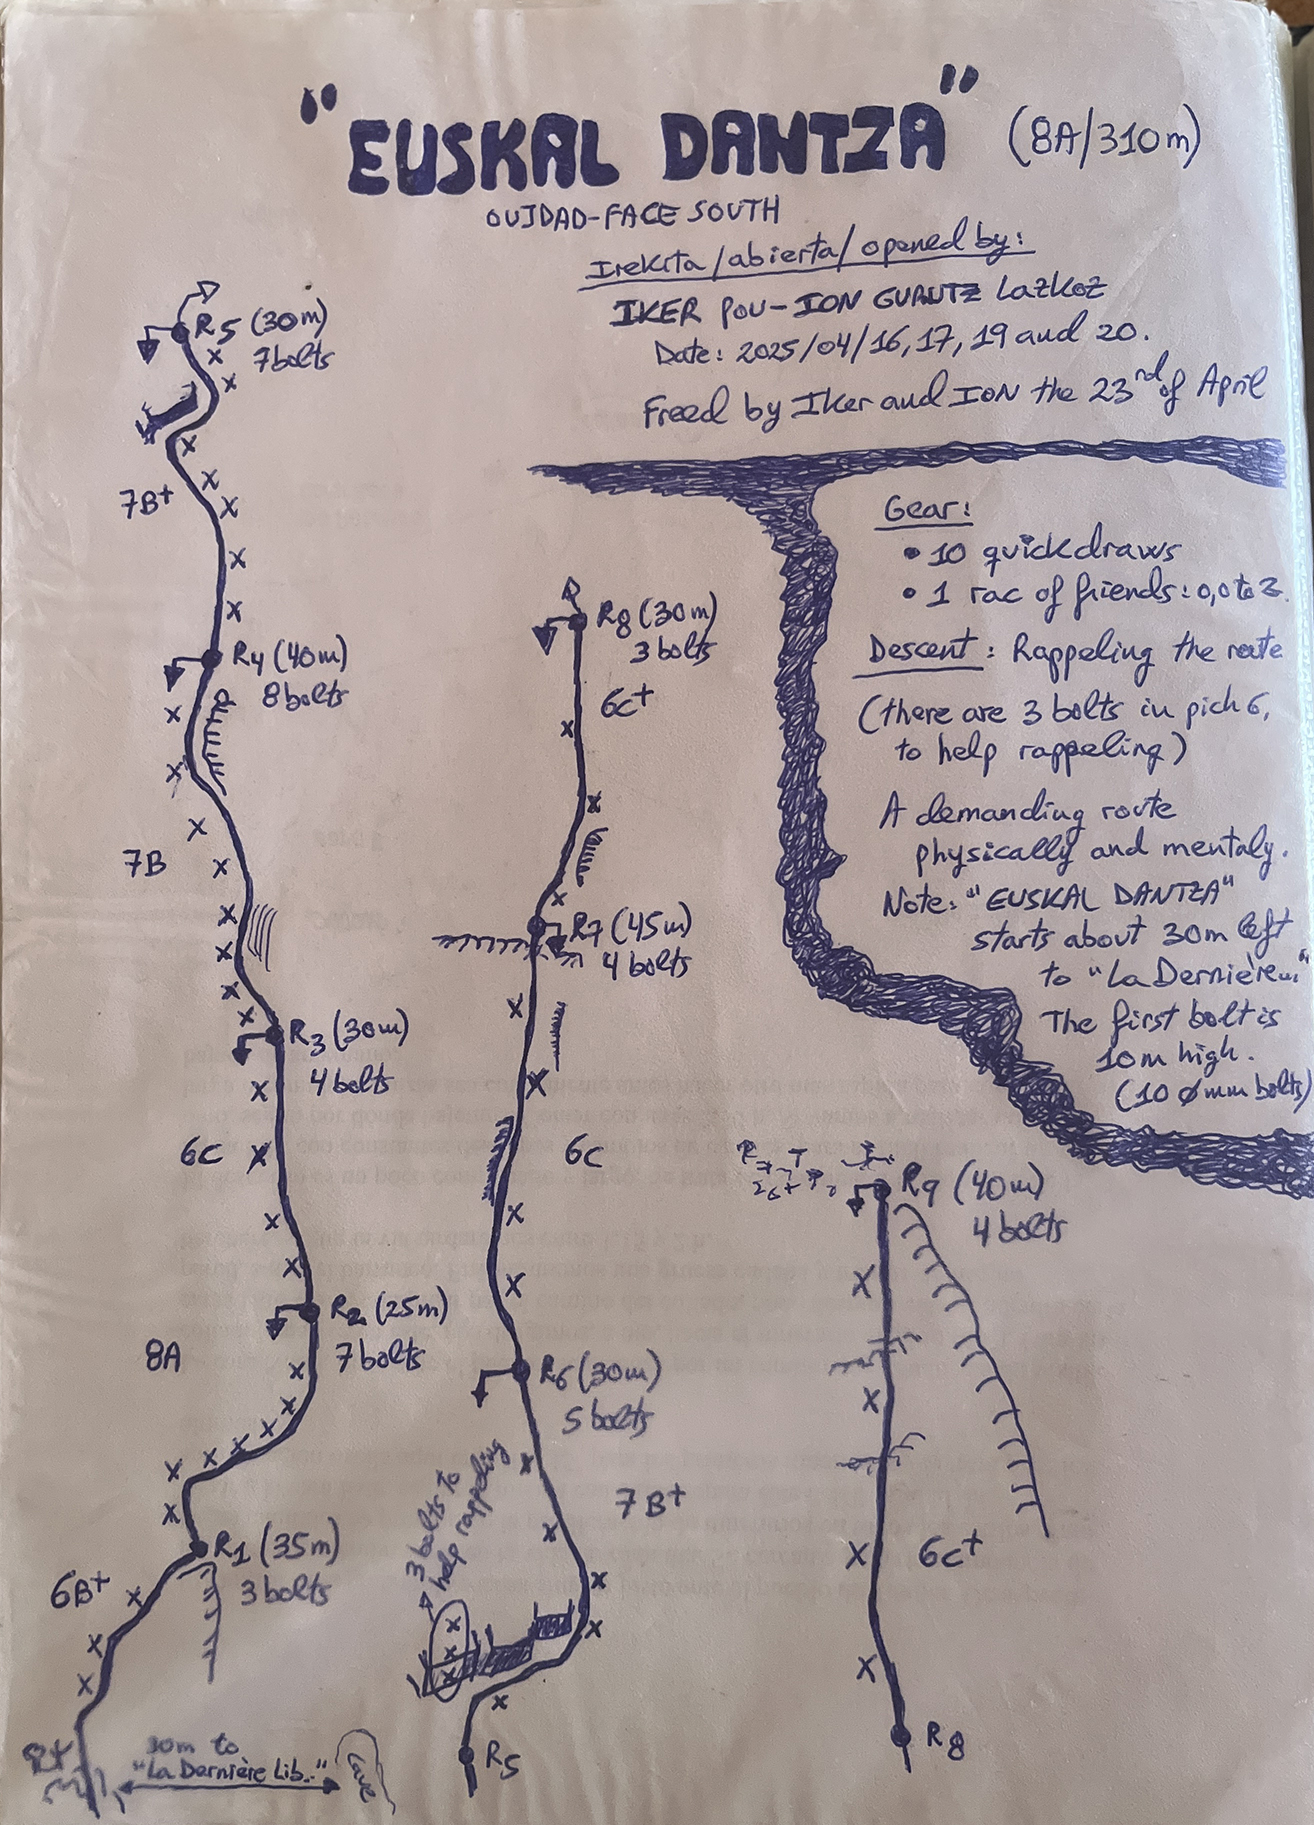 "EUSKAL DANTZA" (8A/310m)
OUJDAD-FACE SOUTH
Irekita/abierta/opened by:
IKER POU-ION GURUTZ LazKoz
Date: 2025/04/16,17,19 and 20.
Freed by Iker and ION the 23rd of April
Gear:
• 10 quickdraws
• 1 rac of friends: 0,0 to 3.
Descent: Rappeling the route
(there are 3 bolts in pich 6,
to help rappeling)
A demanding route
physically and mentaly.
Note: "EUSKAL DANTZA"
starts about 30m left
to "La Dernière..."
The first bolt is
10m high.
(10 Ømm bolts)
R5 (30m)
7bolts
7B+
R4 (40m)
8bolts
7B
R3 (30m)
4 bolts
6C
R2 (25m)
7 bolts
8A
R1 (35m)
3 bolts
6B+
30m to
"La Dernière Lib..."
Cave
R8 (30m)
3 bolts
6C+
R7 (45m)
4 bolts
6C
R6 (30m)
5 bolts
7B+
3 bolts to
help rappeling
R5
R9 (40m)
4 bolts
6C+
R8